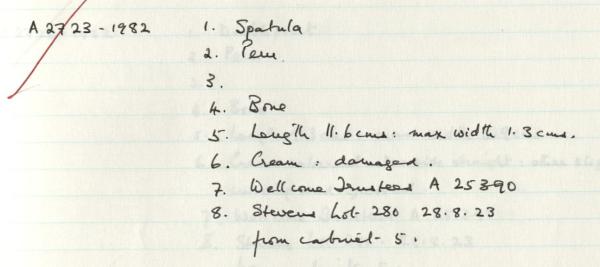 A 2723-1982 1. Spatula
2. Peru
3.
4. Bone
5. Length 11.6cms: max width 1.3cms.
6. Cream: damaged.
7. Wellcome Trustees A 25390
8. Stevens Lot 280 28.8.23
from cabinet 5.